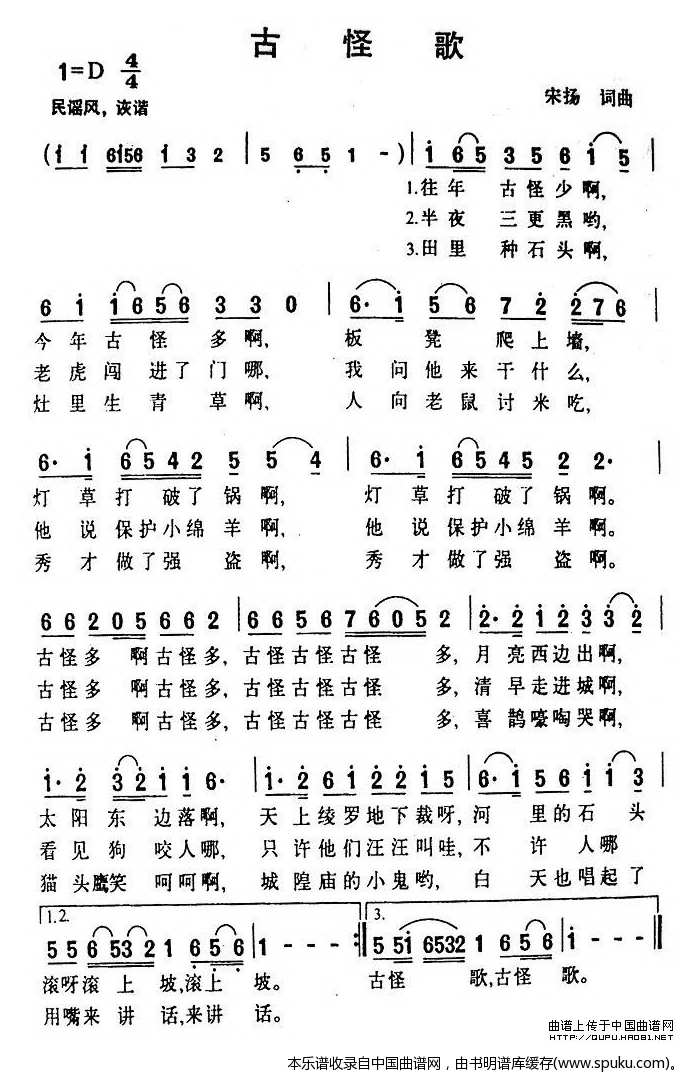 古 怪 歌
1=D 4/4
民谣风，诙谐
宋扬 词曲
( 1 1 6156 1 3 2 | 5 6 5 1 - ) | 1 6 5 3 5 6 1 5 |
1.往年 古怪少啊,
2.半夜 三更黑哟,
3.田里 种石头啊,
6 1 1 6 5 6 3 3 0 | 6· 1 5 6 7 2 2 7 6 |
今年古怪多啊, 板凳爬上墙,
老虎闯进了门哪, 我问他来干什么,
灶里生青草啊, 人向老鼠讨米吃,
6· 1 6 5 4 2 5 5 4 | 6· 1 6 5 4 2 5 2 2· |
灯草打破了锅啊, 灯草打破了锅啊。
他说保护小绵羊啊, 他说保护小绵羊啊。
秀才做了强盗啊, 秀才做了强盗啊。
6 6 2 0 5 6 6 2 | 6 6 5 6 7 6 0 5 2 | 2· 2 1 2 3 3 2 |
古怪多 啊古怪多, 古怪古怪古怪 多, 月亮西边出啊,
古怪多 啊古怪多, 古怪古怪古怪 多, 清早走进城啊,
古怪多 啊古怪多, 古怪古怪古怪 多, 喜鹊嚎啕哭啊,
1· 2 3 2 1 1 6· | 1· 2 6 1 2 2 1 5 | 6· 1 5 6 1 1 3 |
太阳东边落啊, 天上绫罗地下裁呀, 河里的石头
看见狗咬人哪, 只许他们汪汪叫哇, 不许人哪
猫头鹰笑呵呵啊, 城隍庙的小鬼哟, 白天也唱起了
1.2. 3.
5 5 6 5 3 2 1 6 5 6 | 1 - - - :| 5 5 1 6532 1 6 5 6 | 1 - - - |
滚呀滚上坡,滚上坡。 古怪歌,古怪歌。
用嘴来讲话,来讲话。
曲谱上传于中国曲谱网
HTTP://QUPU.HAO81.NET
本乐谱收录自中国曲谱网，由书明谱库缓存(www.spuku.com)。